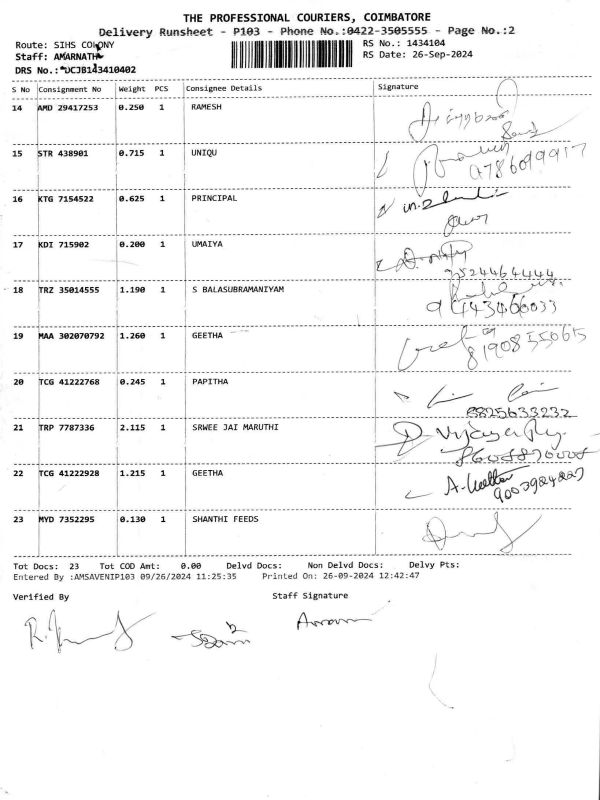 THE PROFESSIONAL COURIERS, COIMBATORE
Delivery Runsheet - P103 - Phone No.:0422-3505555 - Page No.:2
Route: SIHS COLONY RS No.: 1434104
Staff: AMARNATH RS Date: 26-Sep-2024
DRS No.: DCJB143410402
S No Consignment No Weight PCS Consignee Details Signature
14 AMD 29417253 0.250 1 RAMESH
15 STR 438901 0.715 1 UNIQU
9786099917
16 KTG 7154522 0.625 1 PRINCIPAL
17 KDI 715902 0.200 1 UMAIYA
9524464444
18 TRZ 35014555 1.190 1 S BALASUBRAMANIYAM
9443466033
19 MAA 302070792 1.260 1 GEETHA
8190855065
20 TCG 41222768 0.245 1 PAPITHA
8825633232
21 TRP 7787336 2.115 1 SRWEE JAI MARUTHI
22 TCG 41222928 1.215 1 GEETHA
23 MYD 7352295 0.130 1 SHANTHI FEEDS
Tot Docs: 23 Tot COD Amt: 0.00 Delvd Docs: Non Delvd Docs: Delvy Pts:
Entered By :AMSAVENIP103 09/26/2024 11:25:35 Printed On: 26-09-2024 12:42:47
Verified By Staff Signature